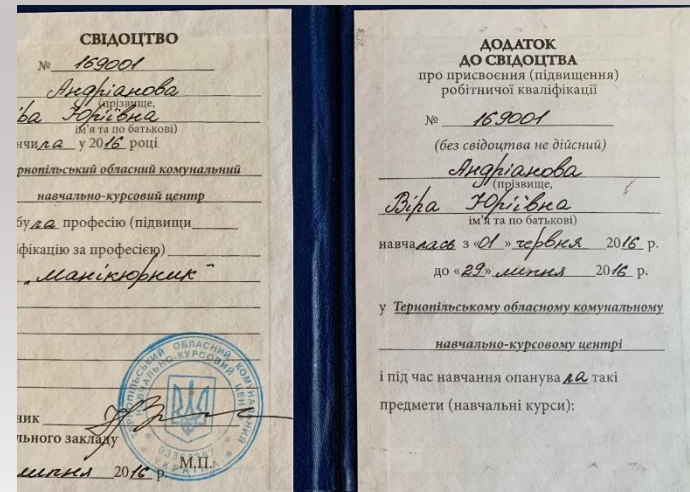 СВІДОЦТВО
№ 169001
Андріанова
(прізвище,
Юріївна
ім'я та по батькові)
нчила у 2016 році
рнопільський обласний комунальний
навчально-курсовий центр
була професію (підвищи
фікацію за професією)
„Манікюрник"
ТЕРНОПІЛЬСЬКИЙ ОБЛАСНИЙ КОМУНАЛЬНИЙ
НАВЧАЛЬНО-КУРСОВИЙ ЦЕНТР
УКРАЇНА
ник
льного закладу
М.П.
липня 2016 р.
ДОДАТОК
ДО СВІДОЦТВА
про присвоєння (підвищення)
робітничої кваліфікації
№ 169001
(без свідоцтва не дійсний)
Андріанова
(прізвище,
Віра Юріївна
ім'я та по батькові)
навчалась з «01» червня 2016 р.
до «29» липня 2016 р.
у Тернопільському обласному комунальному
навчально-курсовому центрі
і під час навчання опанувала такі
предмети (навчальні курси):